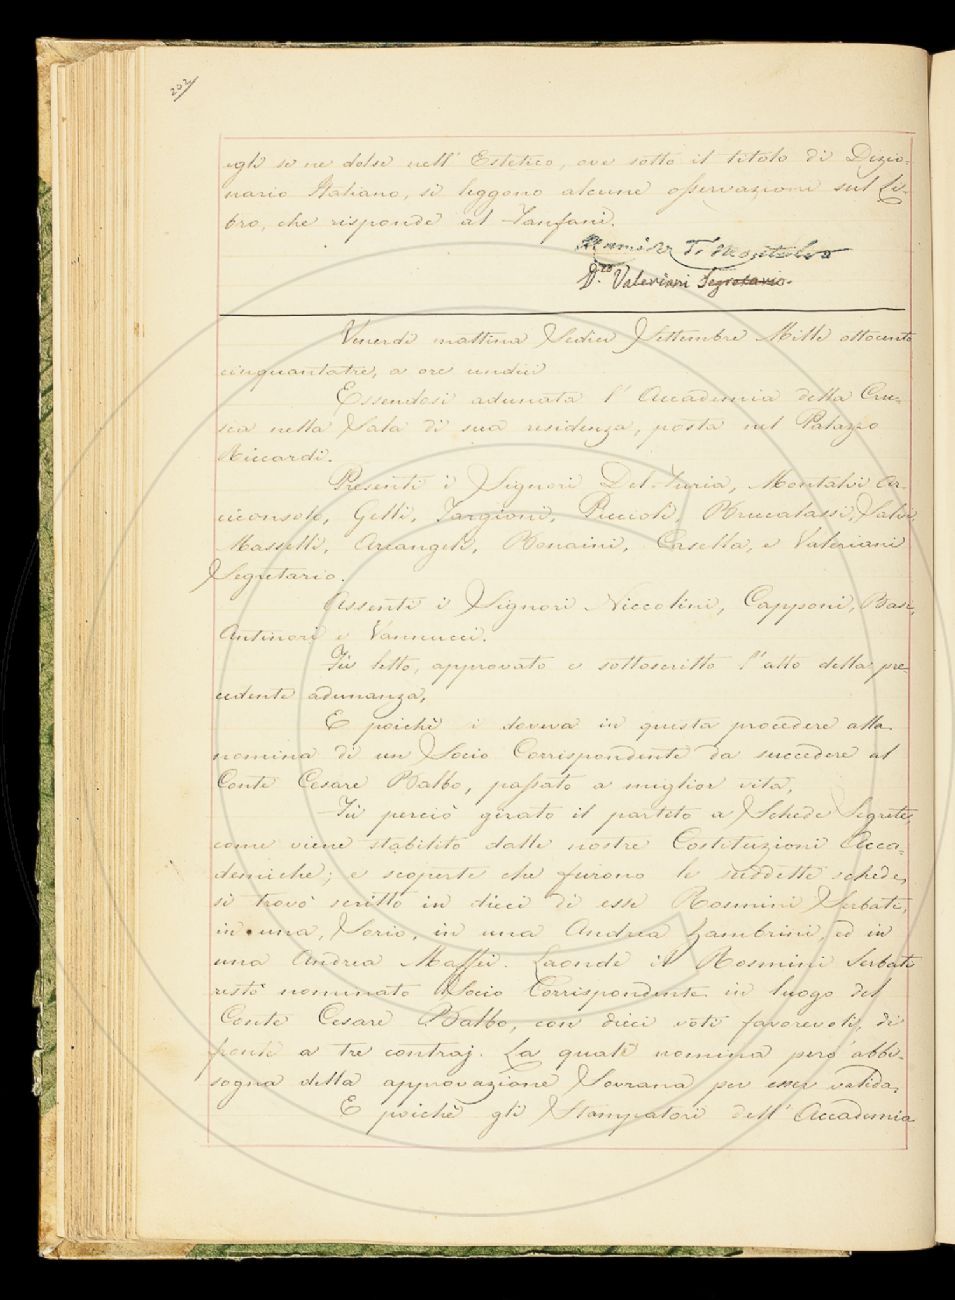 202
egli se ne dolse nell' Estetico, ove sotto il titolo di Dizio-
nario Italiano, si leggono alcune osservazioni sul Li-
bro, che risponde al Fanfani.
D.re Valeriani Segretario.
Venerdì mattina Sedici Settembre Mille ottocento
cinquantatre, a ore undici
Essendosi adunata l' Accademia della Cru-
sca nella Sala di sua residenza, posta nel Palazzo
Riccardi.
Presenti i Signori Del-Furia, Montalvi Ar-
ciconsolo, Gelli, Targioni, Piccioli, Brucalassi, Salvi
Masselli, Arcangeli, Bonaini, Casella, e Valeriani
Segretario.
Assenti i Signori Niccolini, Capponi, Basi,
Antinori e Vannucci.
Fù letto, approvato e sottoscritto l'atto della pre-
cedente adunanza,
E poichè si doveva in questa procedere alla
nomina di un Socio Corrispondente da succedere al
Conte Cesare Balbo, passato a miglior vita,
Fù perciò girato il partito a Schede Segrete,
come viene stabilito dalle nostre Costituzioni Acca-
demiche; e scoperte che furono le suddette schede,
si trovò scritto in dieci di esse Rosmini Serbati,
in una, Sorio, in una Andrea Zambrini, ed in
una Andrea Maffei. Laonde il Rosmini Serbati
restò nominato Socio Corrispondente in luogo del
Conte Cesare Balbo, con dieci voti favorevoli, di
fronte a tre contraj. La quale nomina però abbi-
sogna della approvazione Sovrana per esser valida.
E poichè gli Stampatori dell' Accademia